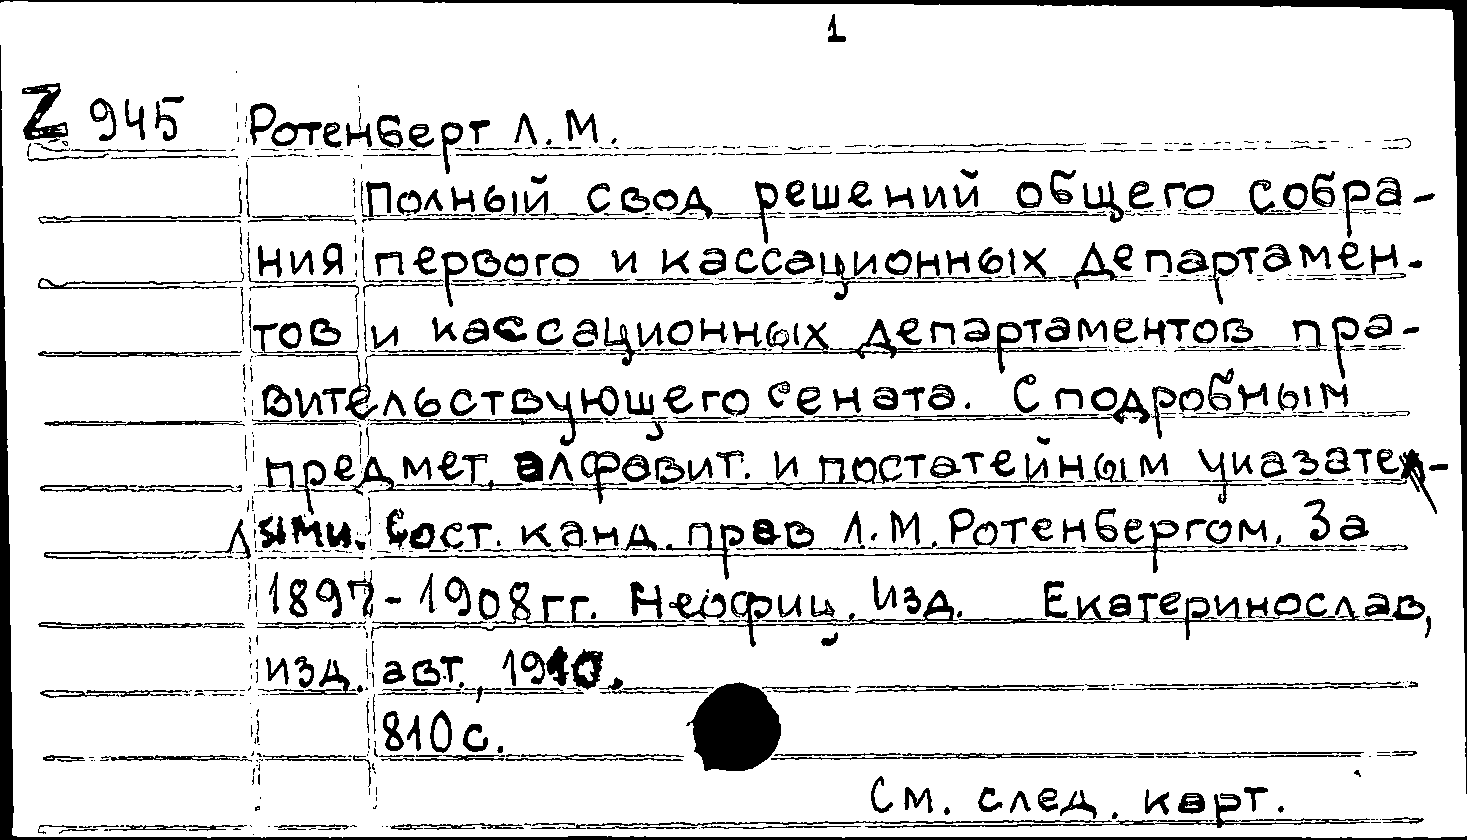 1
Z 945 Ротенберг Л.М.
Полный свод решений общего собра-
ния первого и кассационных департамен-
тов и кассационных департаментов пра-
вительствующего сената. С подробным
предмет. алфавит. и постатейным указател-
ями. Сост. канд. прав Л.М. Ротенбергом. За
1897-1908гг. Неофиц. изд. Екатеринослав,
изд. авт., 1910.
810с.
См. след. карт.